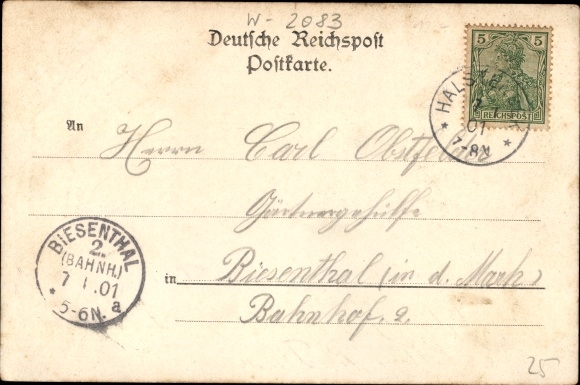 W- 2083
Deutsche Reichspost
Postkarte.
5 5
REICHSPOST
HALS
7 1
01
7-8V
An Herrn Carl
Gärtnergehülfe
in Biesenthal (in d. Mark)
Bahnhof. 2.
BIESENTHAL
2
(BAHNH.)
7 1.01
* 5-6N. a
25